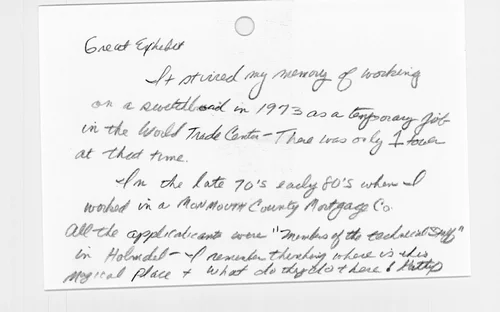 Great Exhibit
It stirred my memory of working
on a switchboard in 1973 as a temporary job
in the World Trade Center - There was only 1 tower
at that time.
In the late 70's early 80's when I
worked in a Monmouth County Mortgage Co.
All the applicants were "Members of the technical Staff"
in Holmdel - I remember thinking where is this
magical place + what do they do there &